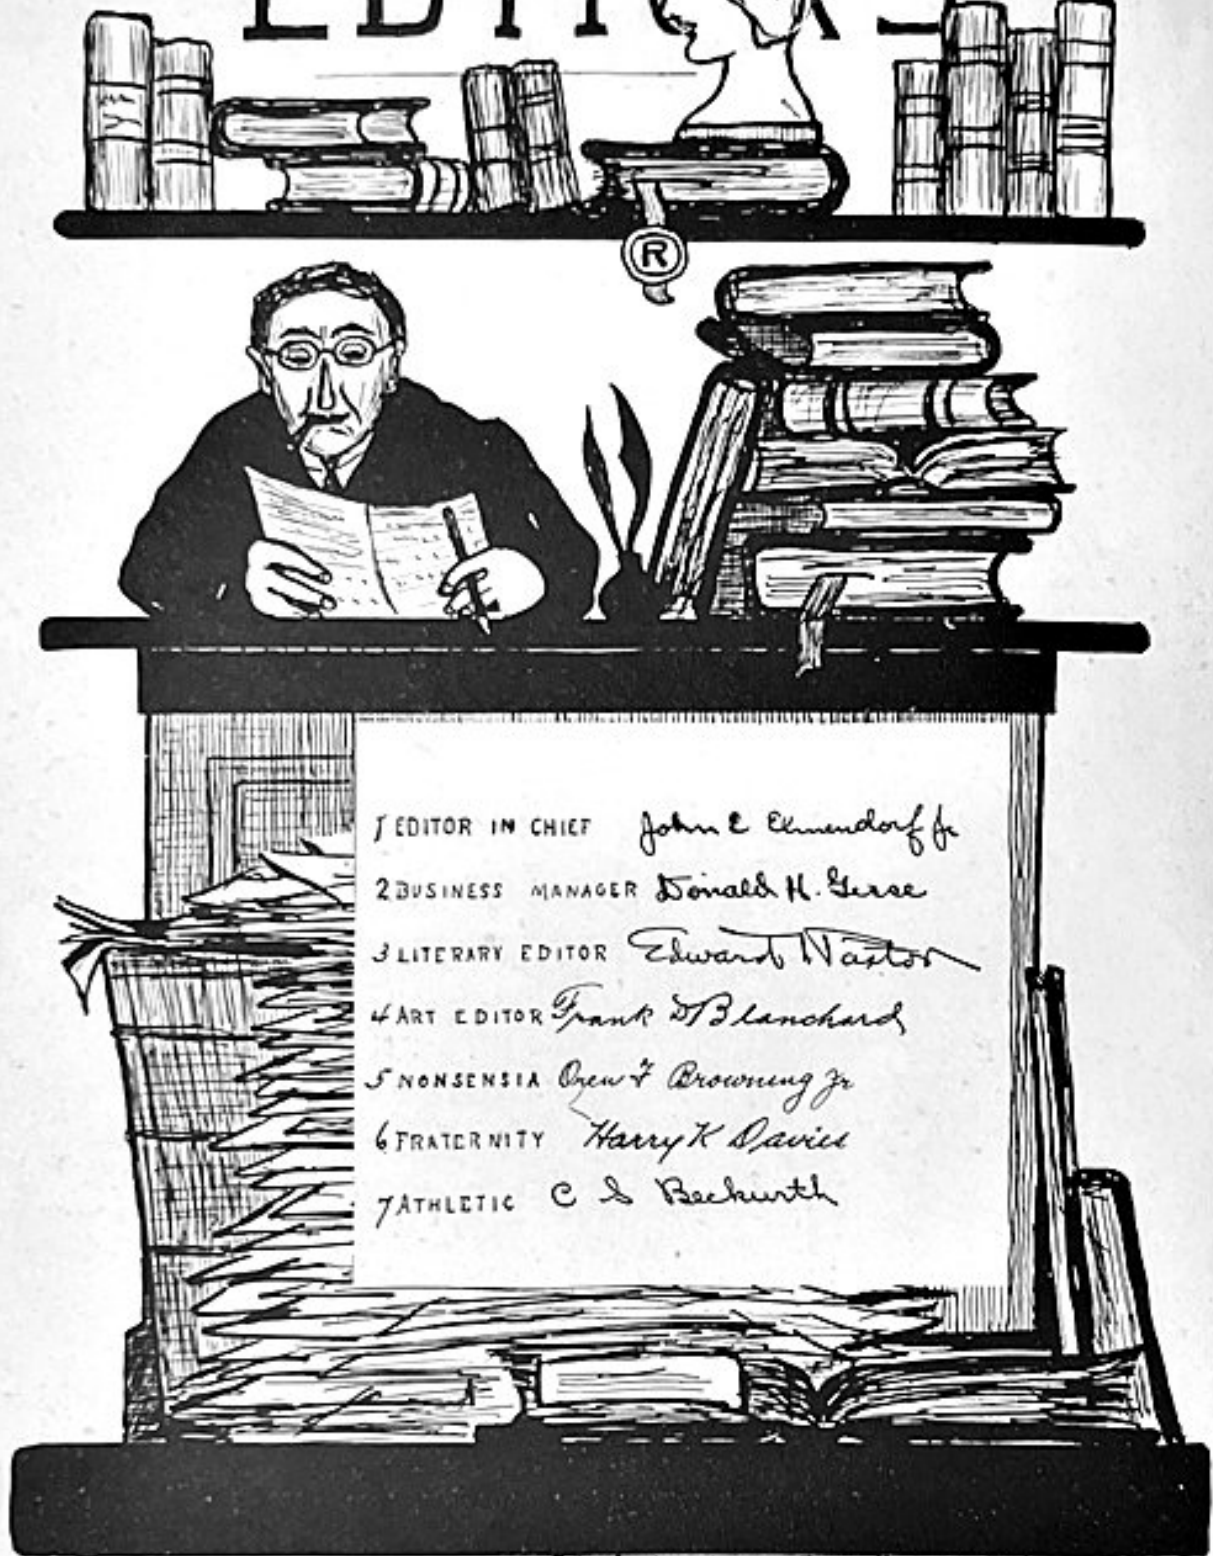 R
1 EDITOR IN CHIEF John E Elmendorf Jr
2 BUSINESS MANAGER Donald H.
3 LITERARY EDITOR Edward
4 ART EDITOR Frank D Blanchard
5 NONSENSIA Oren F Browning Jr
6 FRATERNITY Harry K Davies
7 ATHLETIC C S Beckwith